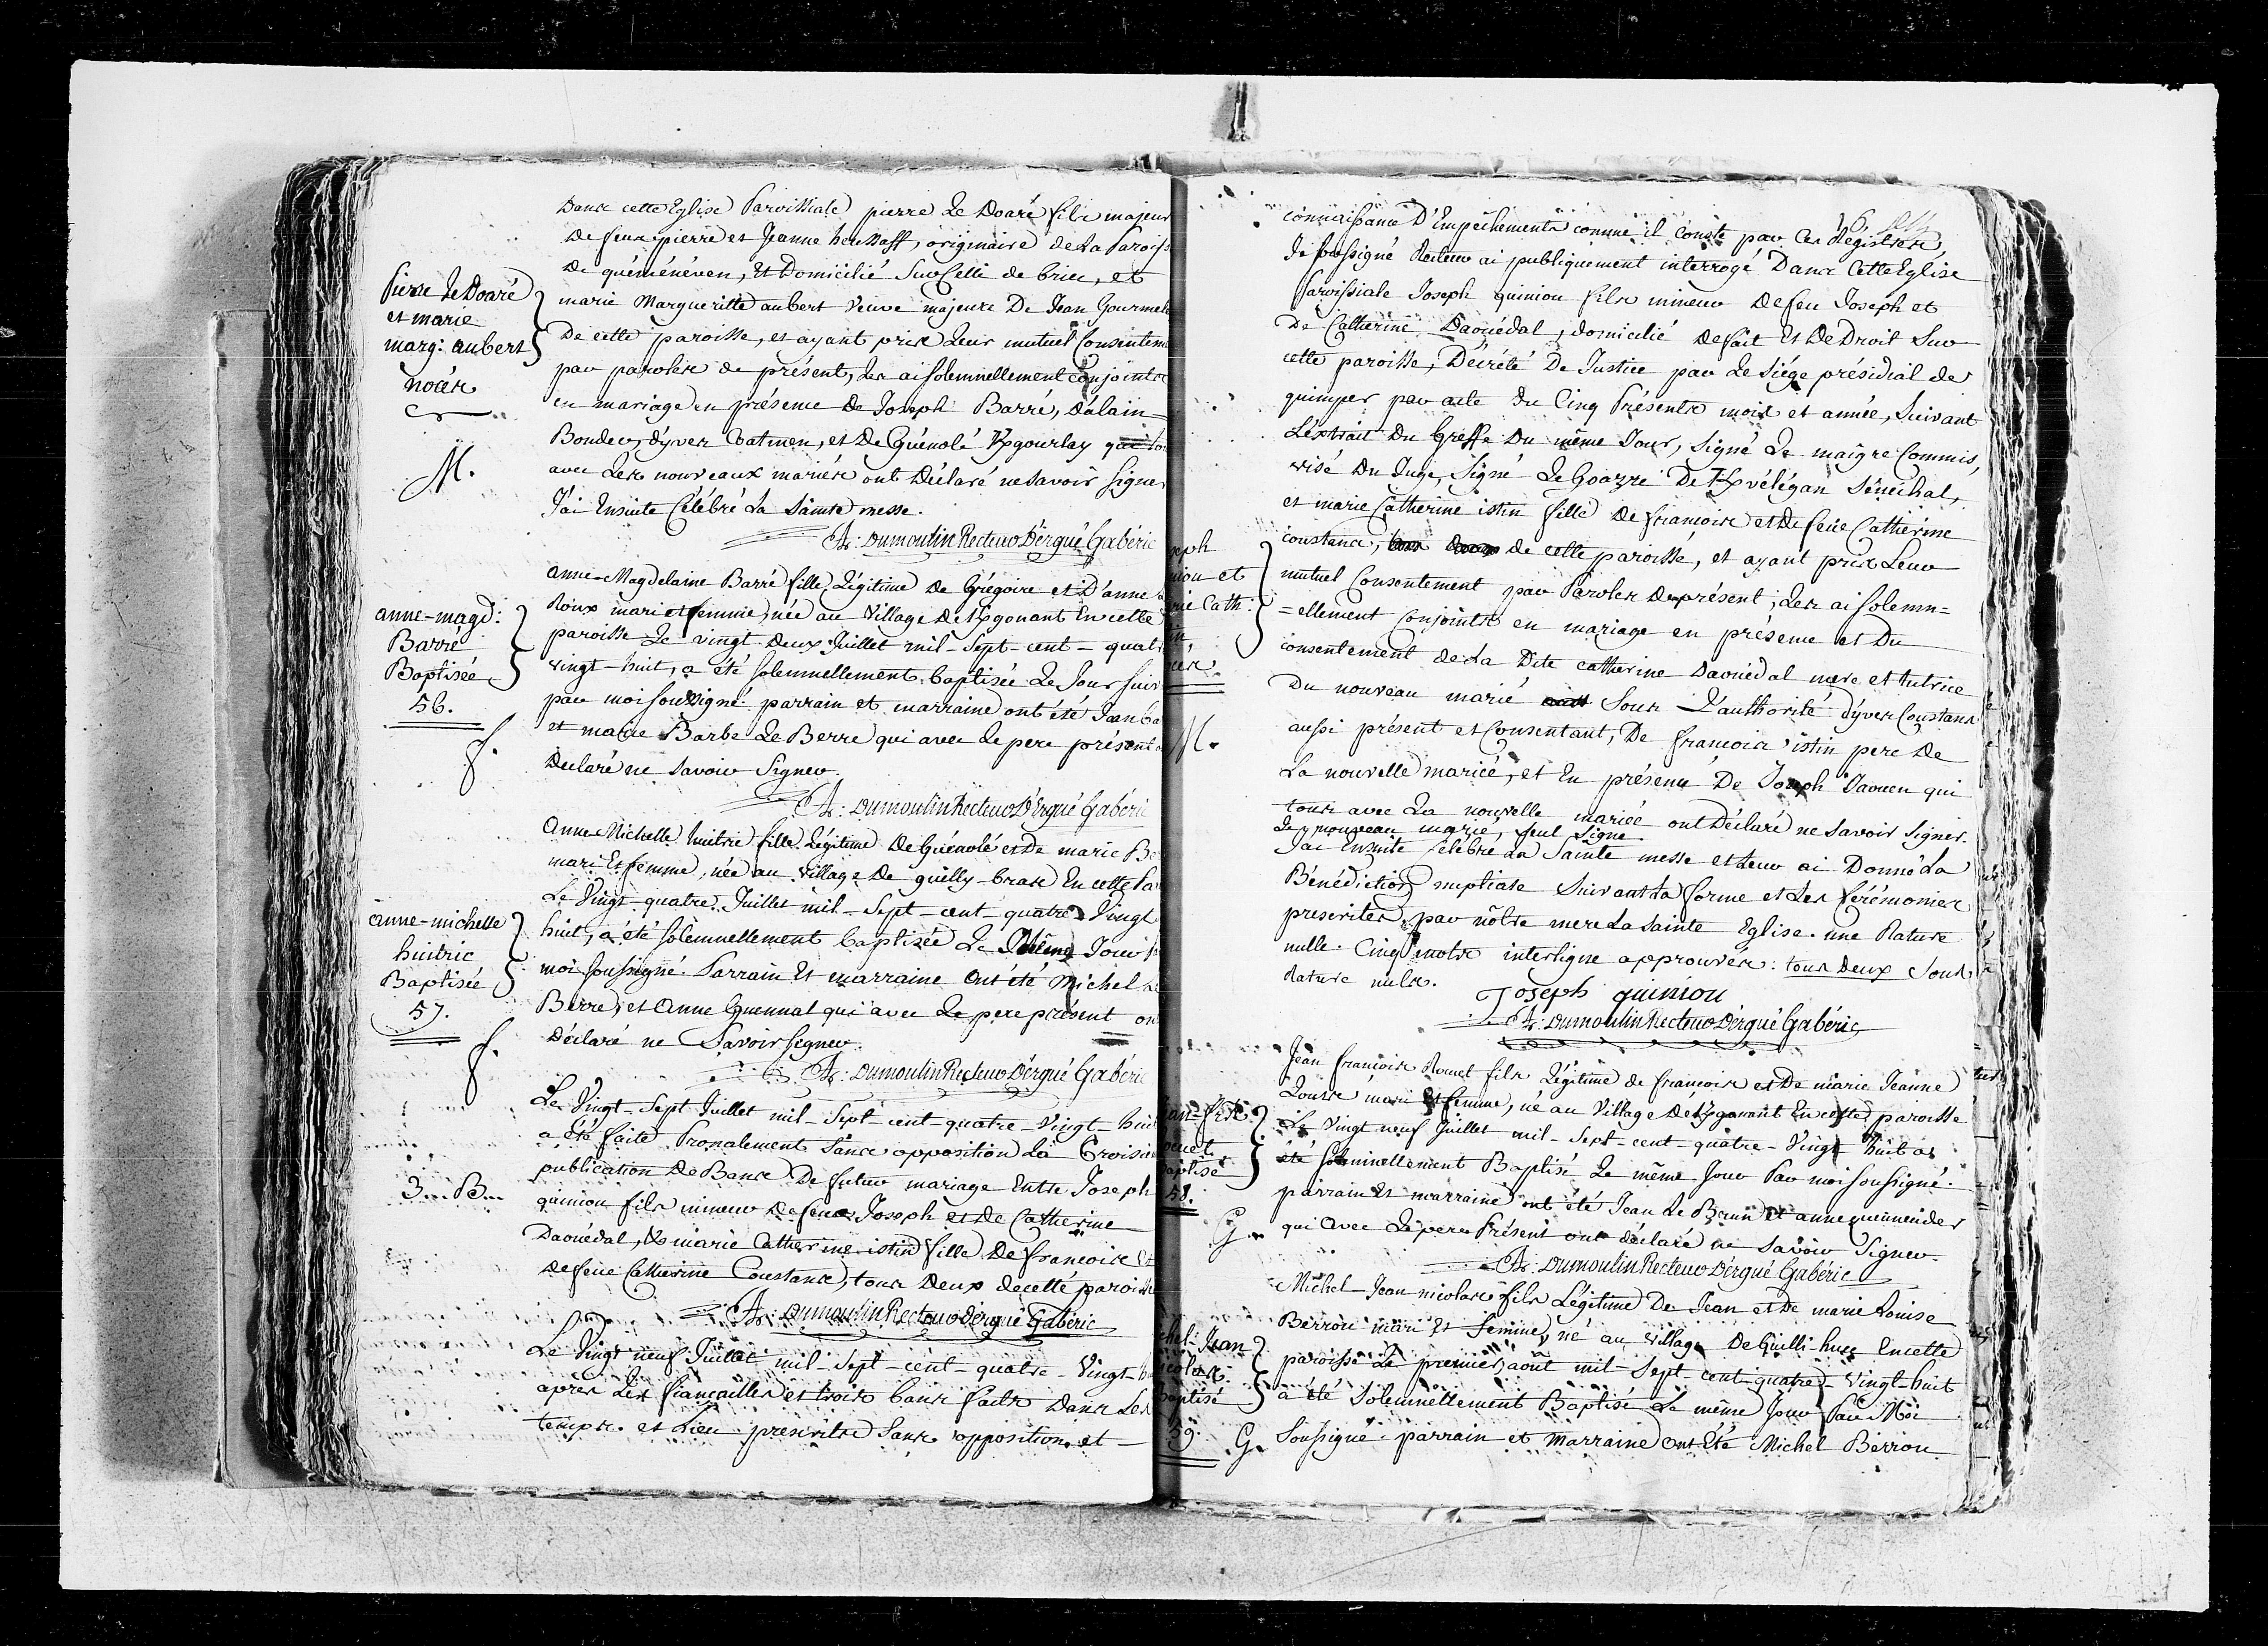 Dans cette Eglise Paroissiale pierre Le Doaré fils majeur
De feux pierre et Jeanne henaff, originaire de la Parois
De quéménéven, Et Domicilié Sur Celle de briec, et
pierre Le Doaré
et marie
marg: aubert
nocés
M.
marie Margueritte aubert Veuve majeure De Jean Gourmel
De cette paroisse, et ayant pris Leur mutuel Consentem
par paroles de présent, Les ai solemnellement conjoints
en mariage en présence de Joseph Barré, D'alain
Bondec, d'yves Coatmen, et De Guénolé Kgourlay qui
avec Les nouveaux mariés ont Déclaré ne savoir signer
J'ai Ensuite Célébré La Sainte messe.
A: Dumoulin Recteur D'ergué Gabéric
anne-magd:
Barré
Baptisée
56.
f.
anne-Magdelaine Barré fille Légitime De Grégoire et D'anne
Roux mari et femme, née au Village De Kgonant En cette
paroisse Le vingt-deux Juillet mil-Sept-cent-quatr
vingt-huit, a été solemnellement baptisée Le Jour suiv
par moi soussigné parrain et marraine ont été Jean
et marie Barbe Le Berre qui avec Le pere présent
Declaré ne savoir Signer.
A: Dumoulin Recteur D'ergué Gabéric
anne-michelle
huitric
Baptisée
57.
f.
Anne-Michelle huitric fille Légitime De Guénolé et De marie Be
mari Et femme, née au Village De quilly-bras En cette Pa
Le Vingt-quatre Juillet mil-Sept-cent-quatre Vingt
huit, a été solemnellement baptisée Le Même Jour
moi soussigné. Parrain Et marraine Ont été Michel
Berre, et Anne Guennat qui avec Le pere présent on
Déclaré ne Savoir signer.
A: Dumoulin Recteur D'ergué Gabéric
3... B...
Le Vingt-Sept Juillet mil-Sept-cent-quatre-Vingt-huit
a été faite Pronalement sans opposition La troisiem
publication De Bans De futur mariage Entre Joseph
quiniou fils mineur De feu Joseph et De Catherine
Daouédal, Et marie Catherine istin fille De francois Et
De feüe Catherine Constans, tous Deux de cette paroisse
A: Dumoulin Recteur D'ergué Gabéric
Le Vingt neuf Juillet mil-Sept-cent-quatre-Vingt-
après Les fiançailles et trois bans faits Dans Les
temps et Lieu prescrits Sans opposition et
connaissance D'Empêchements comme il conste par Ces Régistres,
Je soussigné Recteur ai publiquement interrogé Dans Cette Eglise
Paroissiale Joseph quiniou fils mineur De feu Joseph et
De Catherine Daouédal, domicilié De fait Et De Droit Sur
cette paroisse, Décrété De Justice par Le Siége présidial de
quimper par acte du Cinq Présents mois et année, Suivant
L'extrait Du Greffe Du même Jour, signé Le maigre Commis,
visé Du Juge, Signé Le Goazre De Kvélégan Sénéchal,
et marie Catherine istin fille De francois et De feüe Catherine
constance, de cette paroisse, et ayant pris Leur
mutuel Consentement par Paroles de présent, Les ai solemn=
=ellement Conjoints en mariage en présence et Du
consentement de La Dite catherine Daouédal mere et tutrice
Du nouveau marié Sous L'authorité D'yves Constans
aussi présent et Consentant, De francois istin pere De
La nouvelle mariée, et En présence De Joseph Daouen qui
tous avec La nouvelle mariée ont Déclaré ne savoir signer.
Le nouveau marié, seul signe
J'ai Ensuite Célébré La Sainte messe et Leur ai Donné La
Bénédiction nuptiale Suivant La forme et Les Cérémonies
prescrites par nôtre mere La Sainte Eglise. une Rature
nulle. Cinq mots interligne approuvés: tous Deux Sous
Rature nuls.
Joseph quiniou
A: Dumoulin Recteur D'ergué Gabéric
seph
niou et
rie Cath:
M.
Jean francois Rouet fils Légitime de francois et De marie Jeanne
mari Et femme, né au Village De Kgonant En cette paroisse
Le Vingt neuf Juillet mil-Sept-cent-quatre-Vingt huit a
été solemnellement Baptisé Le même Jour Par moi soussigné.
parrain Et marraine ont été Jean Le Brun et anne
qui avec Le pere Présent ont déclaré ne savoir Signer
A: Dumoulin Recteur D'ergué Gabéric
58.
G.
Michel-Jean nicolas fils Légitime De Jean et De marie Louise
Berrou mari Et femme, né au village De Guilli-huec En cette
paroisse Le premier août mil-Sept-cent quatre-Vingt-huit
a été Solemnellement Baptisé Le même Jour Par Moi
Soussigné. parrain et Marraine Ont Eté Michel Berrou
chel-Jean
icolas
baptisé
59.
G.